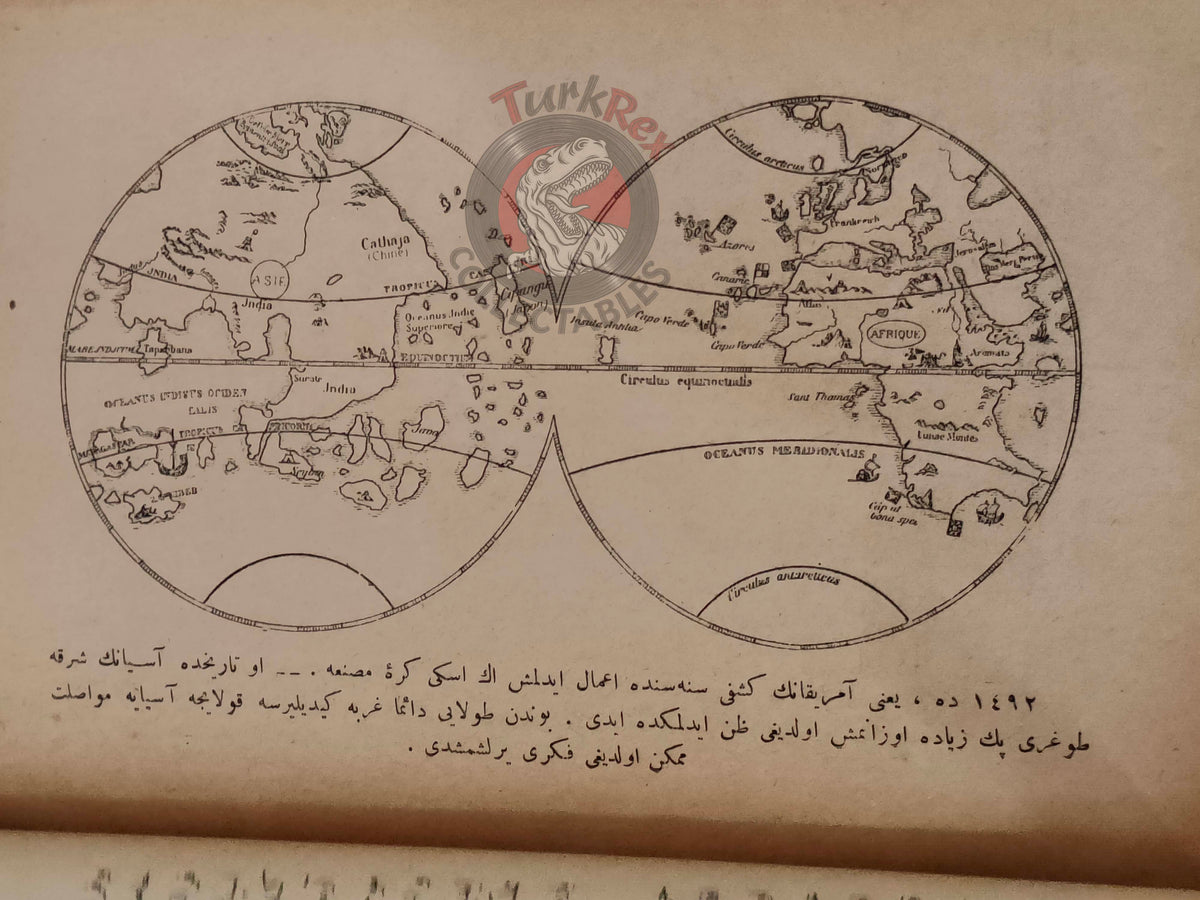 TurkRex
COLLECTABLES
Circulus arcticus
Cathaja
(Chine)
Frankreich
Azores
Jerusalem
INDIA
ASIE
TROPICUS
Cipangu
Canarie
India
Oceanus Indie
Superiore
Insula Antilia
Capo Verde
AFRIQUE
MARE INDICUM
EQUNOCTIU
Capo Verde
Aromata
Circulus equinoctialis
Surate
India
OCEANUS INDICUS OCIDEN
CALIS
Sant Thomas
Lunae Montes
TROPICUS
Java
OCEANUS MERIDIONALIS
MADAGASTAR
Seylan
Cap al
bona spei
Circulus antarcticus
١٤٩٢ ده ، يعنى آمريقانك كشفى سنه‌سنده اعمال ايدلمش اك اسكى كرۀ مصنعه . ــ او تاريخده آسيانك شرقه
طوغرى پك زياده اوزانمش اولديغى ظن ايدلمكده ايدى . بوندن طولايى دائما غربه كيديليرسه قولايجه آسيايه مواصلت
ممكن اولديغى فكرى يرلشمشدى .